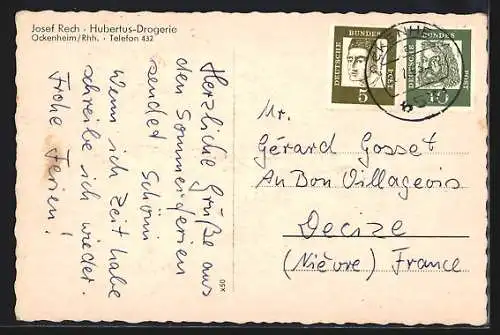 Josef Rech - Hubertus-Drogerie
Ockenheim/Rhh. · Telefon 432
Herzliche Grüße aus
den Sommerferien
sendet Schönn
Wenn ich Zeit habe
schreibe ich wieder.
Frohe Ferien!
DEUTSCHE BUNDESPOST
5
DEUTSCHE BUNDESPOST
10
Mr.
Gérard Gosset
Au Bon Villageois
Decize
(Nièvre) France